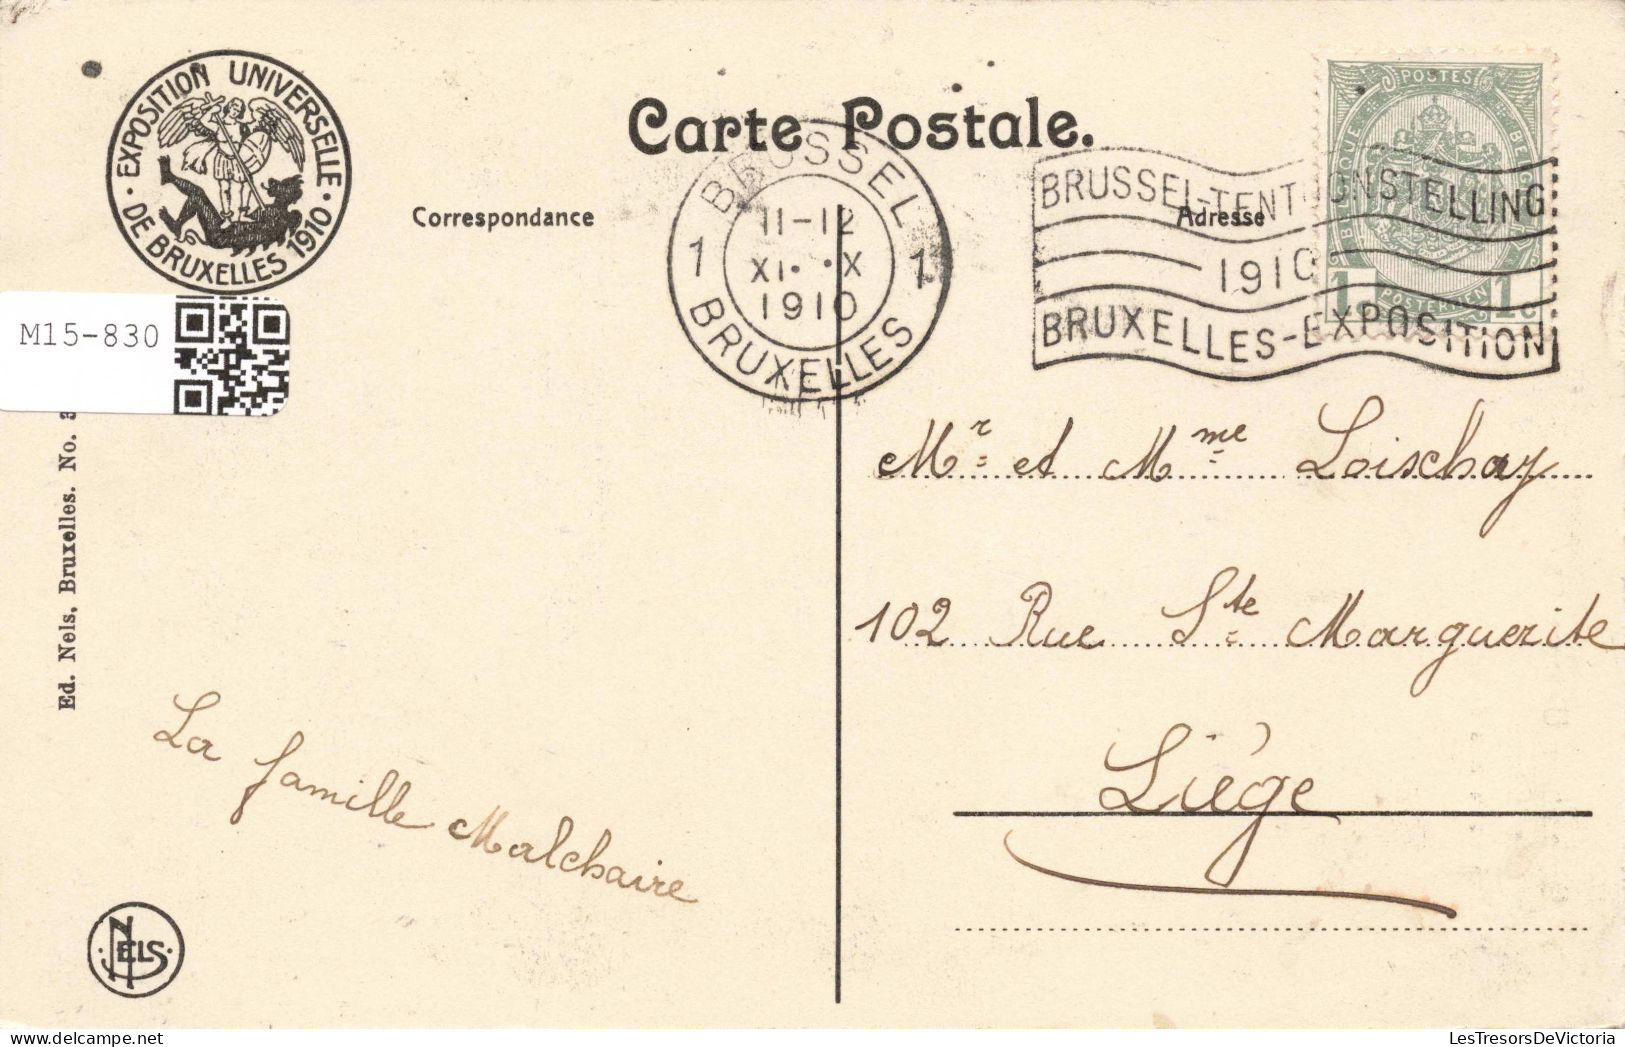 EXPOSITION UNIVERSELLE
DE BRUXELLES 1910
Carte Postale.
Correspondance
Adresse
BRUSSEL
11-12
XI X
1910
1 1
BRUXELLES
BRUSSEL-TENTOONSTELLING
1910
BRUXELLES-EXPOSITION
POSTES
BELGIQUE
1c 1c
M15-830
Ed. Nels, Bruxelles. No.
Mr et Mme Loischay
102 Rue Ste Marguerite
Liége
La famille Malchaire
NELS
LesTresorsDeVictoria